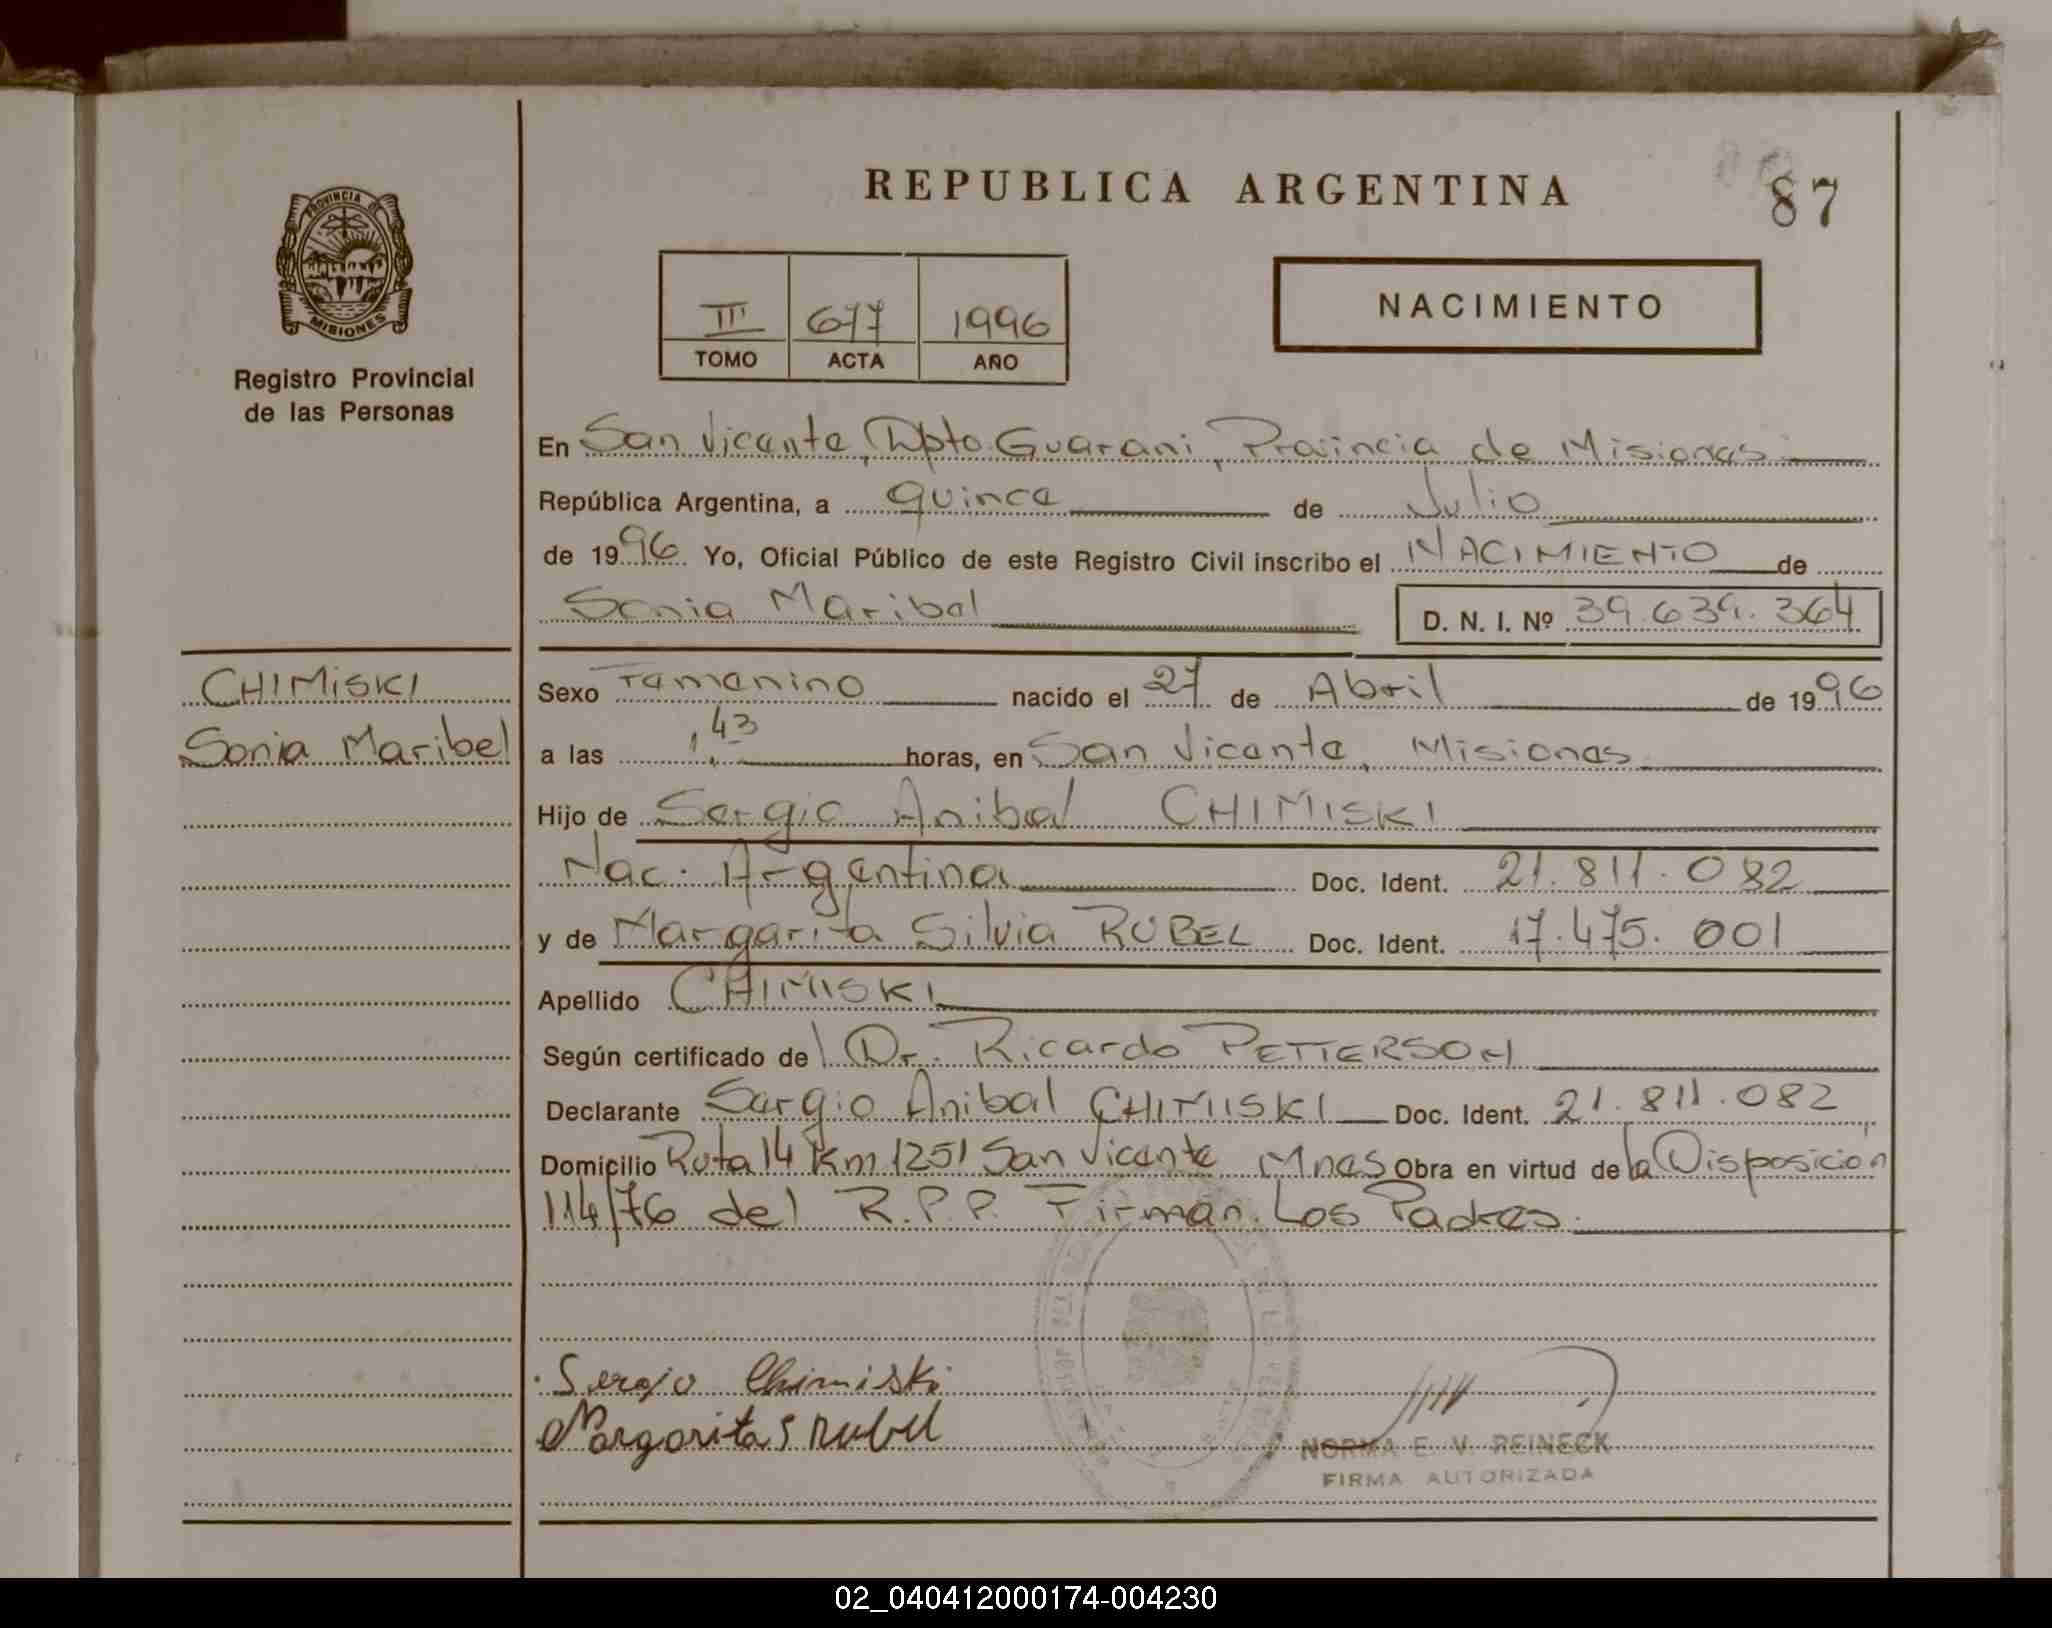 REPUBLICA ARGENTINA
87
PROVINCIA DE
MISIONES
Registro Provincial
de las Personas
III 677 1996
TOMO ACTA AÑO
NACIMIENTO
En San Vicente, Dpto. Guarani, Provincia de Misiones.
República Argentina, a quince de Julio
de 1996 Yo, Oficial Público de este Registro Civil inscribo el NACIMIENTO de
Sonia Maribel D. N. I. Nº 39.639.364
CHIMISKI
Sonia Maribel
Sexo Femenino nacido el 27 de Abril de 1996
a las 1,43 horas, en San Vicente, Misiones
Hijo de Sergio Anibal CHIMISKI
Nac. Argentina Doc. Ident. 21.811.082
y de Margarita Silvia RUBEL Doc. Ident. 17.475.001
Apellido CHIMISKI
Según certificado del Dr. Ricardo PETTERSON
Declarante Sergio Anibal CHIMISKI Doc. Ident. 21.811.082
Domicilio Ruta 14 Km 1251 San Vicente Mnes Obra en virtud de la Disposición
114/76 del R.P.P. Firman Los Padres.
Sergio Chimiski
Margarita S Rubel
NORMA E. V. REINECK
FIRMA AUTORIZADA
02_040412000174-004230